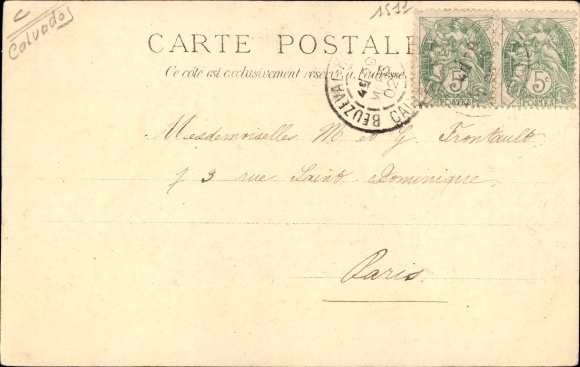 C
Calvados
1511
CARTE POSTALE
Ce côté est exclusivement réservé à l'adresse.
5c 5c
POSTES POSTES
BEUZEVAL
02
Mesdemoiselles M et G. Frontault
73 rue Saint Dominique
Paris